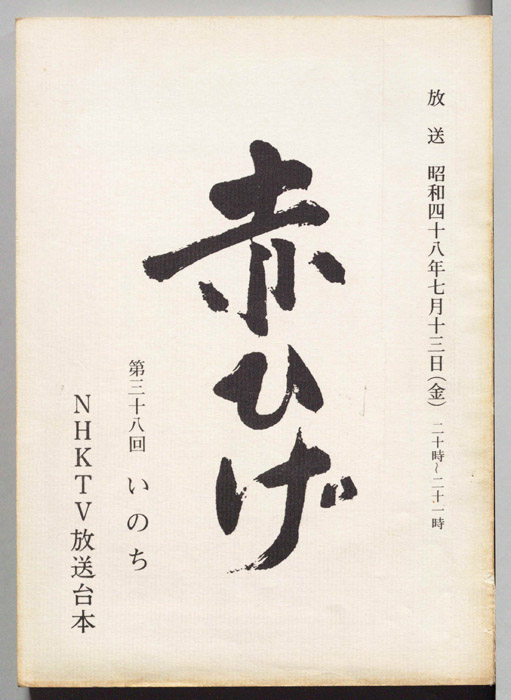 放送 昭和四十八年七月十三日(金) 二十時~二十一時
赤ひげ
第三十八回 いのち
NHKTV放送台本